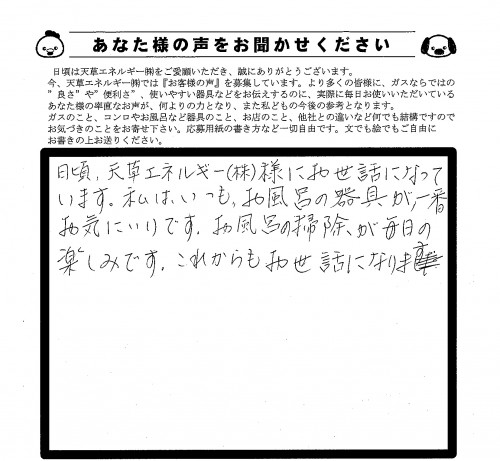 あなた様の声をお聞かせください
日頃は天草エネルギー㈱をご愛顧いただき、誠にありがとうございます。
今、天草エネルギー㈱では『お客様の声』を募集しています。より多くの皆様に、ガスならではの
”良さ”や”便利さ”、使いやすい器具などをお伝えするのに、実際に毎日お使いいただいている
あなた様の率直なお声が、何よりの力となり、また私どもの今後の参考となります。
ガスのこと、コンロやお風呂など器具のこと、お店のこと、他社との違いなど何でも結構ですので
お気づきのことをお寄せ下さい。応募用紙の書き方など一切自由です。文でも絵でもご自由に
お書きの上お送りください。
日頃、天草エネルギー(株)様にお世話になって
います。私は、いつも、お風呂の器具が、一番
お気にいりです。お風呂の掃除が毎日の
楽しみです。これからもお世話になります